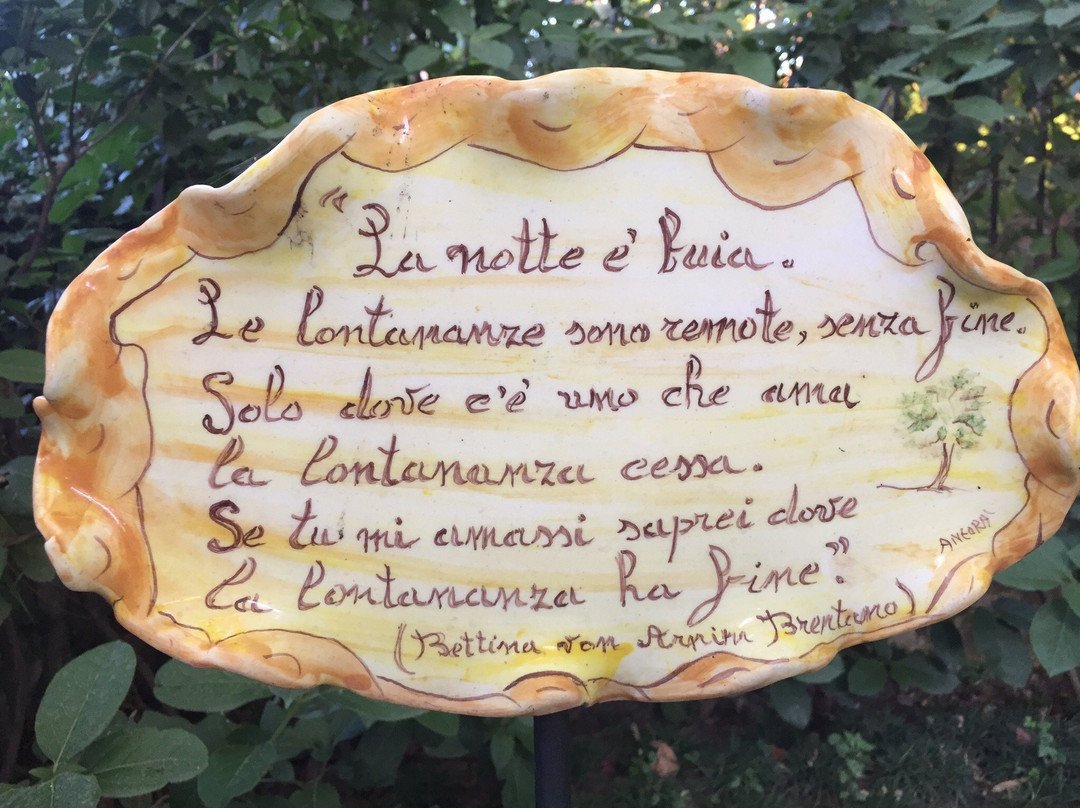 "La notte é buia.
Le lontananze sono remote, senza fine.
Solo dove c'é uno che ama
la lontananza cessa.
Se tu mi amassi saprei dove
la lontananza ha fine."
(Bettina von Arnim Brentano)